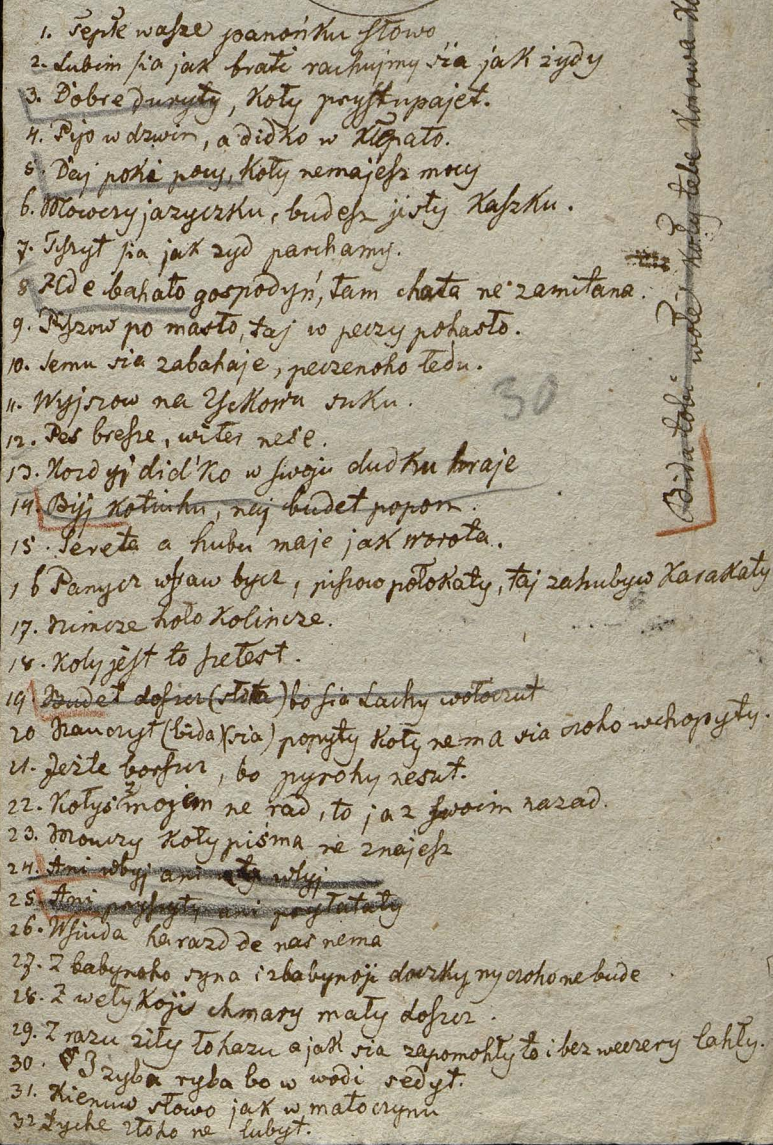 1. Tepłe wasze panońku słowo
2. Lubim sia jak brati rachujmy sia jak żydy
3. Dobre duryty, koły prystupajet.
4. Pijo w dzwin, a didko w kłepało.
5. Daj poki pocy, koły nemajesz mocy
6. Mowczy jazyczku, budesz jisty kaszku.
7. Tszyt sia jak żyd parchamy.
8 Hde bahato gospodyń, tam chata ne zamitana.
9. Piszow po masło, taj w peczy pohasło.
10. Semu sia zabahaje, peczenoho ledu.
11. Wyjszow na Yckowu suku.
12. Pes bresze, witer nese.
13. Kozdyj did'ko w swoju dudku hraje
14. Bij kotiuhu, naj budet popom.
15. Sereta a hubu maje jak worota.
16 Panycz wkraw bycz, piszow połokaty, taj zahubyw karakaty
17. Nimcze hoło kolincze.
18. Koly jest to szelest.
19 Budet doszcz (słota) bo sia Lachy wołoczut
20 Nauczyt (bida)(sia) popyty koły nema sia czoho wchopyty.
21. Jeżte borszcz, bo pyrohy nesut.
22. Kołyś z mojem ne rad, to ja z swoim nazad.
23. Mowczy koły piśma ne znajesz
24. Ani wbyj ani włyj
25. Ani pryszyty ani pryłataty
26. Wsiuda harazd de nas nema
27. Z babynoho syna i z babynoji doczky nyczoho ne bude
28. Z wełykojis chmary mały doszcz.
29. Z razu żiły to hazu a jak sia zapomohły to i bez weczery lahły.
30. Z zyba ryba bo w wodi sedyt.
31. Kienuw słowo jak w małoczynu
32 Łyche złoho ne lubyt.
30
Bida tobi wołe koły tebe korowa